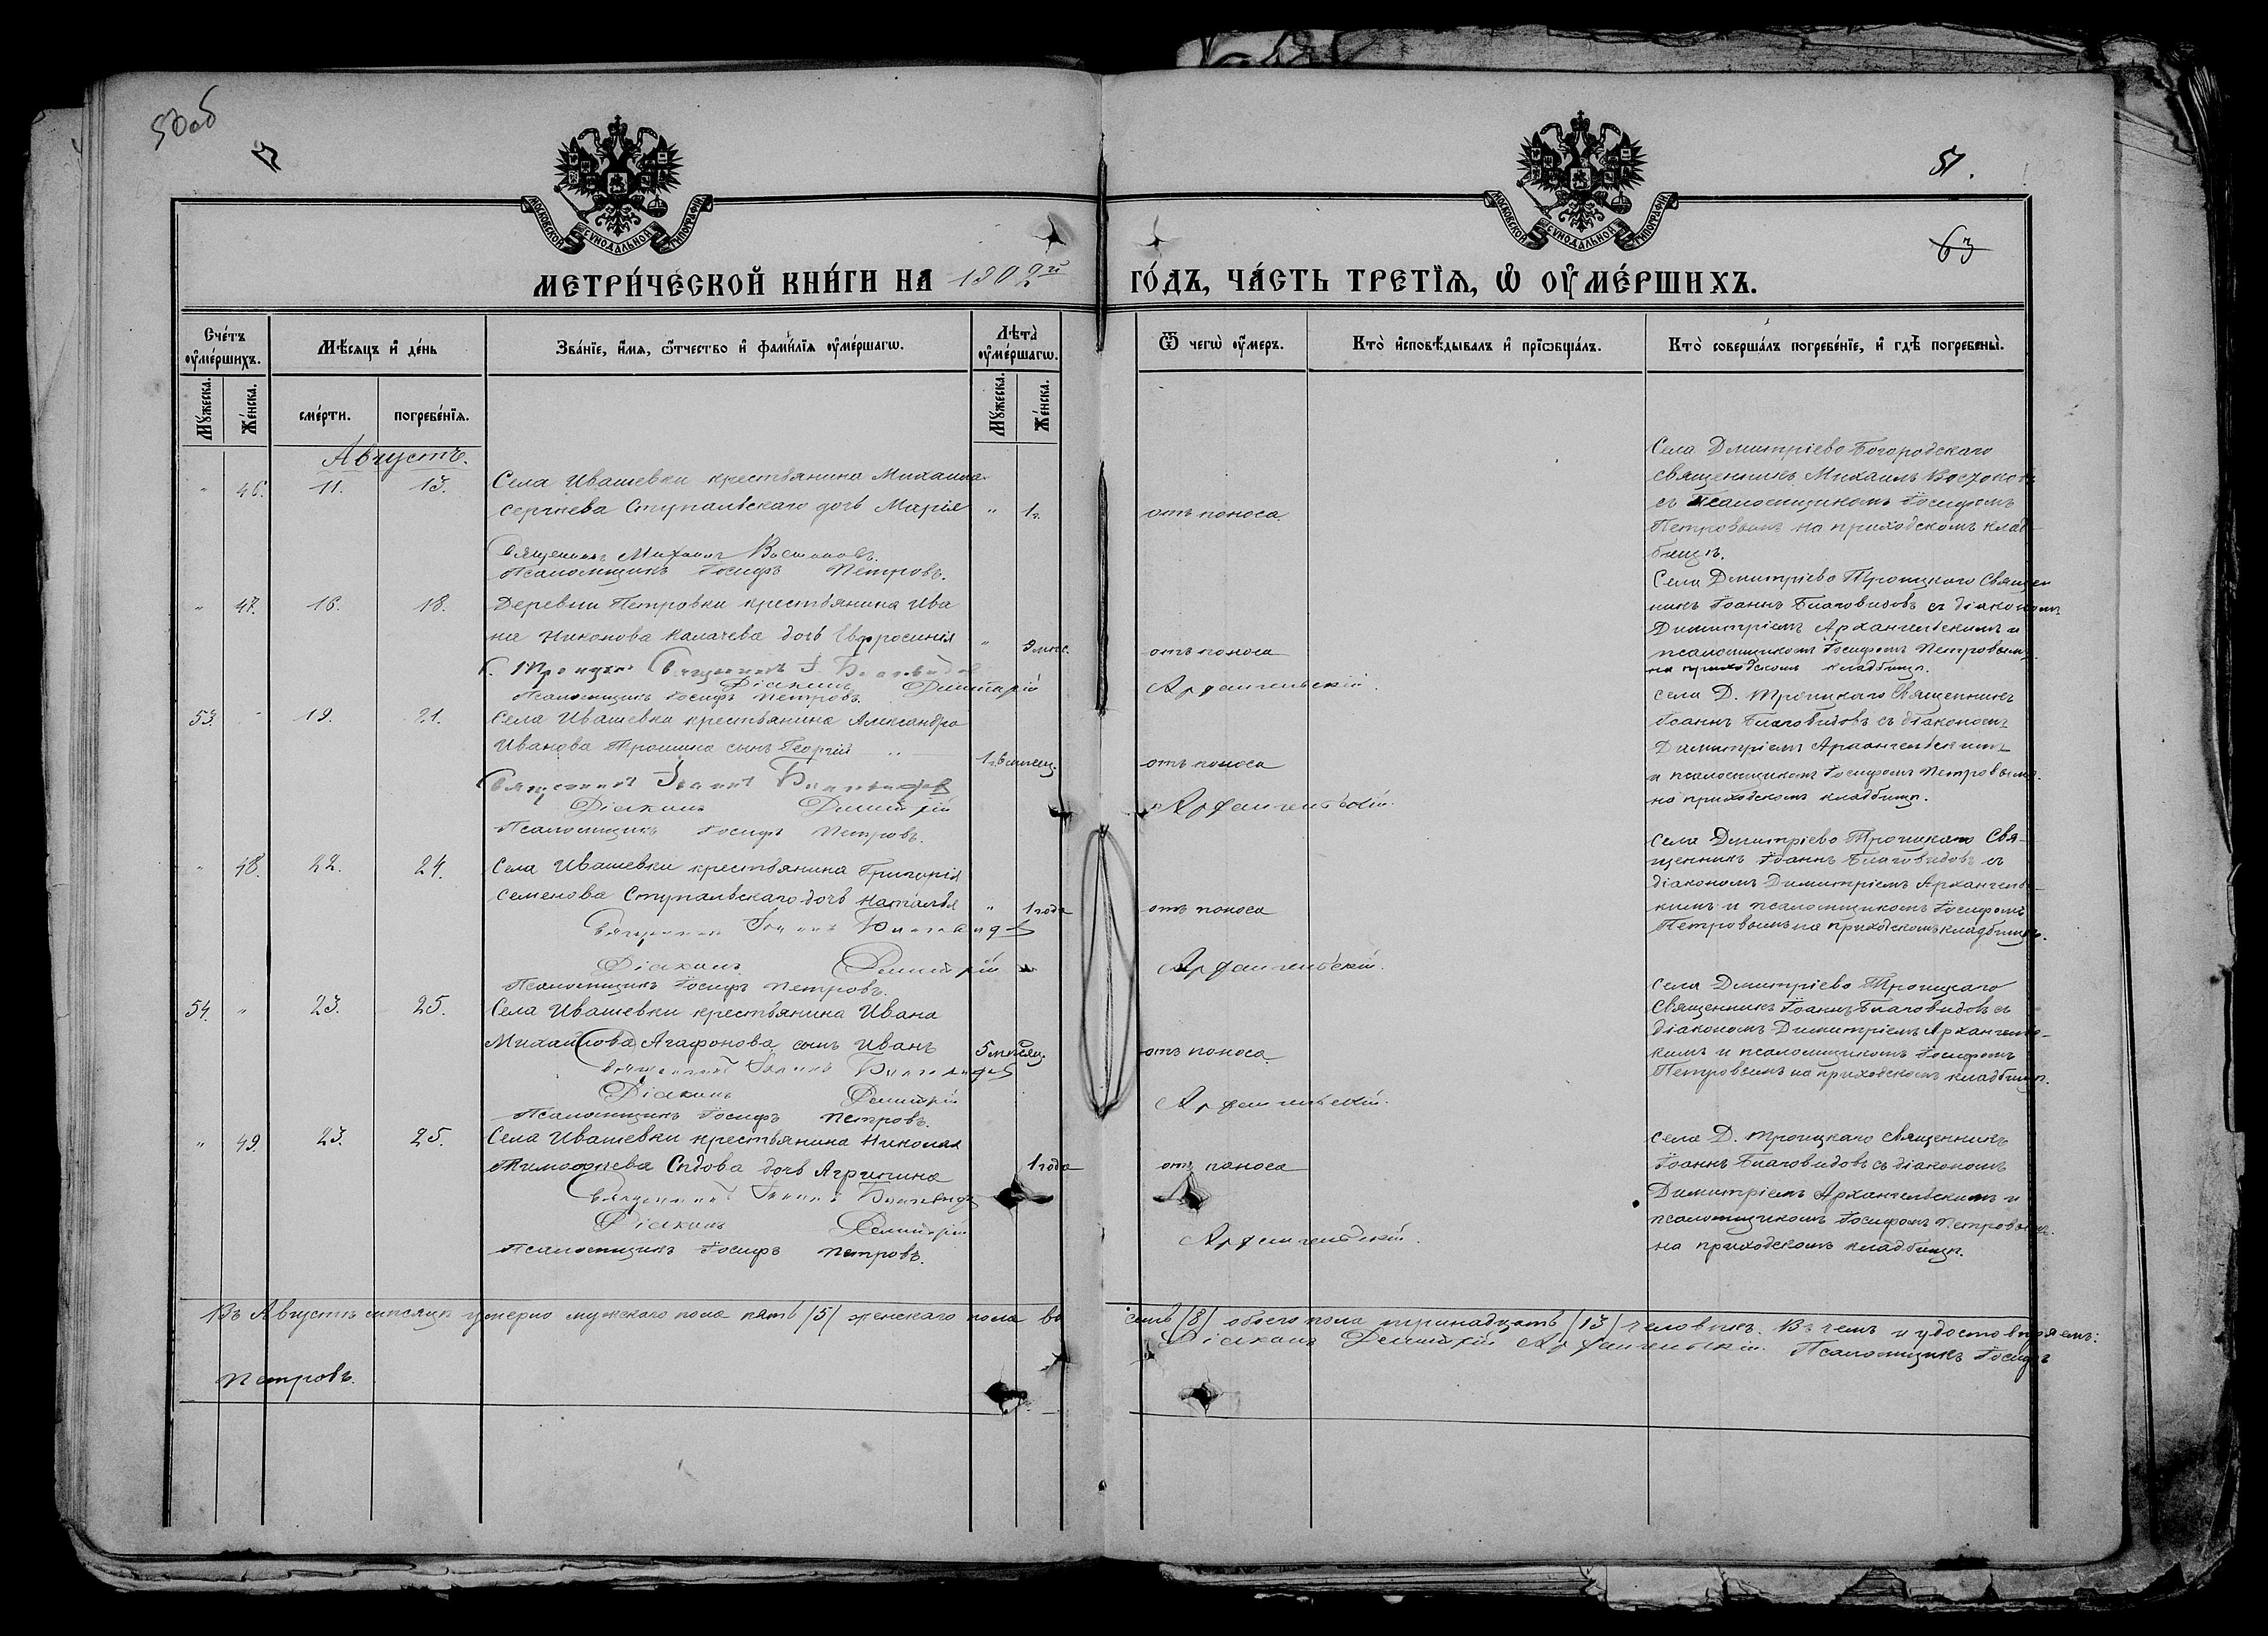 50об
51.
63
МОСКОВСКОЙ СѴНОДАЛЬНОЙ ТИПОГРАФІИ
МОСКОВСКОЙ СѴНОДАЛЬНОЙ ТИПОГРАФІИ
МЕТРИ́ЧЕСКОЙ КНИ́ГИ НА 1902й ГО́ДЪ, ЧА́СТЬ ТРЕТІѦ, Ѡ ОУМЕ́РШИХЪ.
Сче́тъ оуме́ршихъ.
Мѣ́сѧцъ и де́нь
Зва́нїе, и́мѧ, ѻ҆́тчество и фами́лїѧ оуме́ршагѡ.
Лѣта̀ оуме́ршагѡ.
Ѿ чегѡ̀ оу́меръ.
Кто̀ и҆сповѣ́дывалъ и прїѡбща́лъ.
Кто̀ соверша́лъ погребе́нїе, и гдѣ̀ погребены̀.
Мꙋ́жеска.
Же́нска.
сме́рти.
погребе́нїѧ.
Мꙋ́жеска.
Же́нска.
Августъ.
" 46. 11. 13. Села Ивашевки крестьянина Михаила
Сергѣева Ступальскаго дочь Марія " 1г. отъ поноса.
Священникъ Михаилъ Востоковъ.
Псаломщикъ Іосифъ Петровъ.
Села Дмитріево Богородскаго
священникъ Михаилъ Востоковъ
съ псаломщикомъ Іосифомъ
Петровымъ на приходскомъ клад-
бищѣ.
" 47. 16. 18. Деревни Петровки крестьянина Ива
на Никонова Калачева дочь Евфросинія " 9 мѣс. отъ поноса
С. Троицк. Священникъ І. Благовидовъ
Діаконъ Димитрій Архангельскій.
Псаломщикъ Іосифъ Петровъ.
Села Дмитріево Троицкаго Священ
никъ Іоаннъ Благовидовъ съ діакономъ
Димитріемъ Архангельскимъ и
псаломщикомъ Іосифомъ Петровымъ
на приходскомъ кладбищѣ.
53. " 19. 21. Села Ивашевки крестьянина Александра
Иванова Трошина сынъ Георгій 1г. 6 мѣсяц. отъ поноса
Священникъ Іоаннъ Благовидовъ
Діаконъ Димитрій Архангельскій.
Псаломщикъ Іосифъ Петровъ.
Села Д. Троицкаго Священникъ
Іоаннъ Благовидовъ съ діакономъ
Димитріемъ Архангельскимъ
и псаломщикомъ Іосифомъ Петровымъ.
на приходскомъ кладбищѣ.
" 48. 22. 24. Села Ивашевки крестьянина Григорія
Семенова Ступальскаго дочь Наталья " 1 года отъ поноса
Священникъ Іоаннъ Благовидовъ
Діаконъ Димитрій Архангельскій.
Псаломщикъ Іосифъ Петровъ.
Села Дмитріево Троицкаго Свя-
щенникъ Іоаннъ Благовидовъ съ
діакономъ Димитріемъ Архангельс-
кимъ и псаломщикомъ Іосифомъ
Петровымъ на приходскомъ кладбищѣ.
54. " 23. 25. Села Ивашевки крестьянина Ивана
Михайлова Агафонова сынъ Иванъ 5 мѣсяц. отъ поноса
Священникъ Іоаннъ Благовидовъ
Діаконъ Димитрій Архангельскій.
Псаломщикъ Іосифъ Петровъ.
Села Дмитріево Троицкаго
Священникъ Іоаннъ Благовидовъ съ
діакономъ Димитріемъ Архангельс-
кимъ и псаломщикомъ Іосифомъ
Петровымъ на приходскомъ кладбищѣ.
" 49. 23. 25. Села Ивашевки крестьянина Николая
Тимофѣева Сѣдова дочь Агрипина 1 года отъ поноса
Священникъ Іоаннъ Благовидовъ
Діаконъ Димитрій Архангельскій.
Псаломщикъ Іосифъ Петровъ.
Села Д. Троицкаго Священникъ
Іоаннъ Благовидовъ съ діакономъ
Димитріемъ Архангельскимъ и
псаломщикомъ Іосифомъ Петровымъ.
на приходскомъ кладбищѣ.
Въ Августѣ мѣсяцѣ умерло мужскаго пола пять /5/ женскаго пола во семь /8/ обоего пола тринадцать /13/ человѣкъ. Въ чемъ и удостовѣряемъ:
Діаконъ Димитрій Архангельскій. Псаломщикъ Іосифъ
Петровъ.